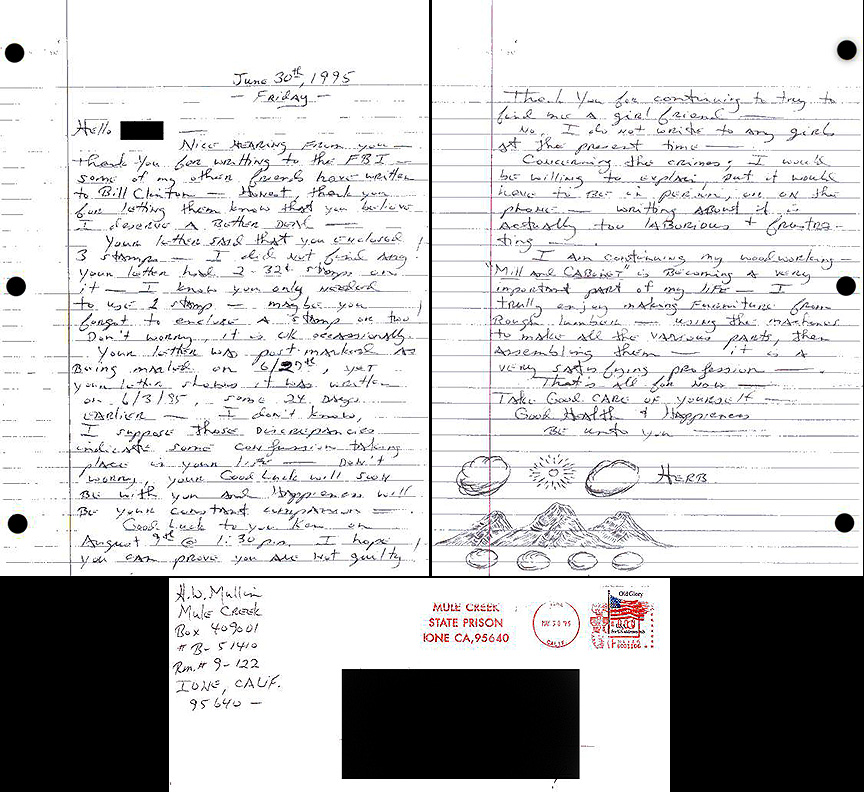 June 30th, 1995
— Friday —
Hello
Nice Hearing From you —
thank you for writting to the FBI —
some of my other friends have written
to Bill Clinton — Honest, thank you
for letting them know that you believe
I deserve A Better Deal —
Your letter said that you enclosed
3 stamps — I did not find any!
your letter had 2-32¢ stamps on
it — I know you only needed
to use 1 stamp — maybe you
forgot to enclose A stamp or two!
Don't worry, it is ok occassionally.
Your letter was post-marked as
Being mailed on 6/27th, yet
your letter shows it was written
on 6/3/95, some 24 Days
Earlier — I don't know,
I suppose those Discrepancies
indicate some confussion taking
place in your life — Don't
worry, your Good Luck will soon
Be with you and Happieness will
Be your constant companion —.
Good Luck to you Ken on
August 9th @ 1:30 p.m. I hope
you can prove you are Not guilty.
Thank You for continuing to try to
find me A girl friend —
No, I do not write to any girls
At the present time —.
Concerning the crimes; I would
be willing to explain, but it would
have to Be in person, or on the
phone — writting About it is
Actually too laborious & frustra-
ting —.
I Am continuing my woodworking —
"Mill and Cabinet" is Becoming A very
important part of my life — I
trully enjoy making Furniture from
Rough lumber — using the machines
to make all the various parts, then
Assembling them — it is A
very satisfying profession —.
That's all for Now —
Take Good Care of Yourself —
Good Health & Happieness
Be unto you —
Herb
H.W. Mullin
Mule Creek
Box 409001
# B-51410
Rm.# 9-122
Ione, Calif.
95640 —
MULE CREEK
STATE PRISON
IONE CA, 95640
CALIF.
Old Glory